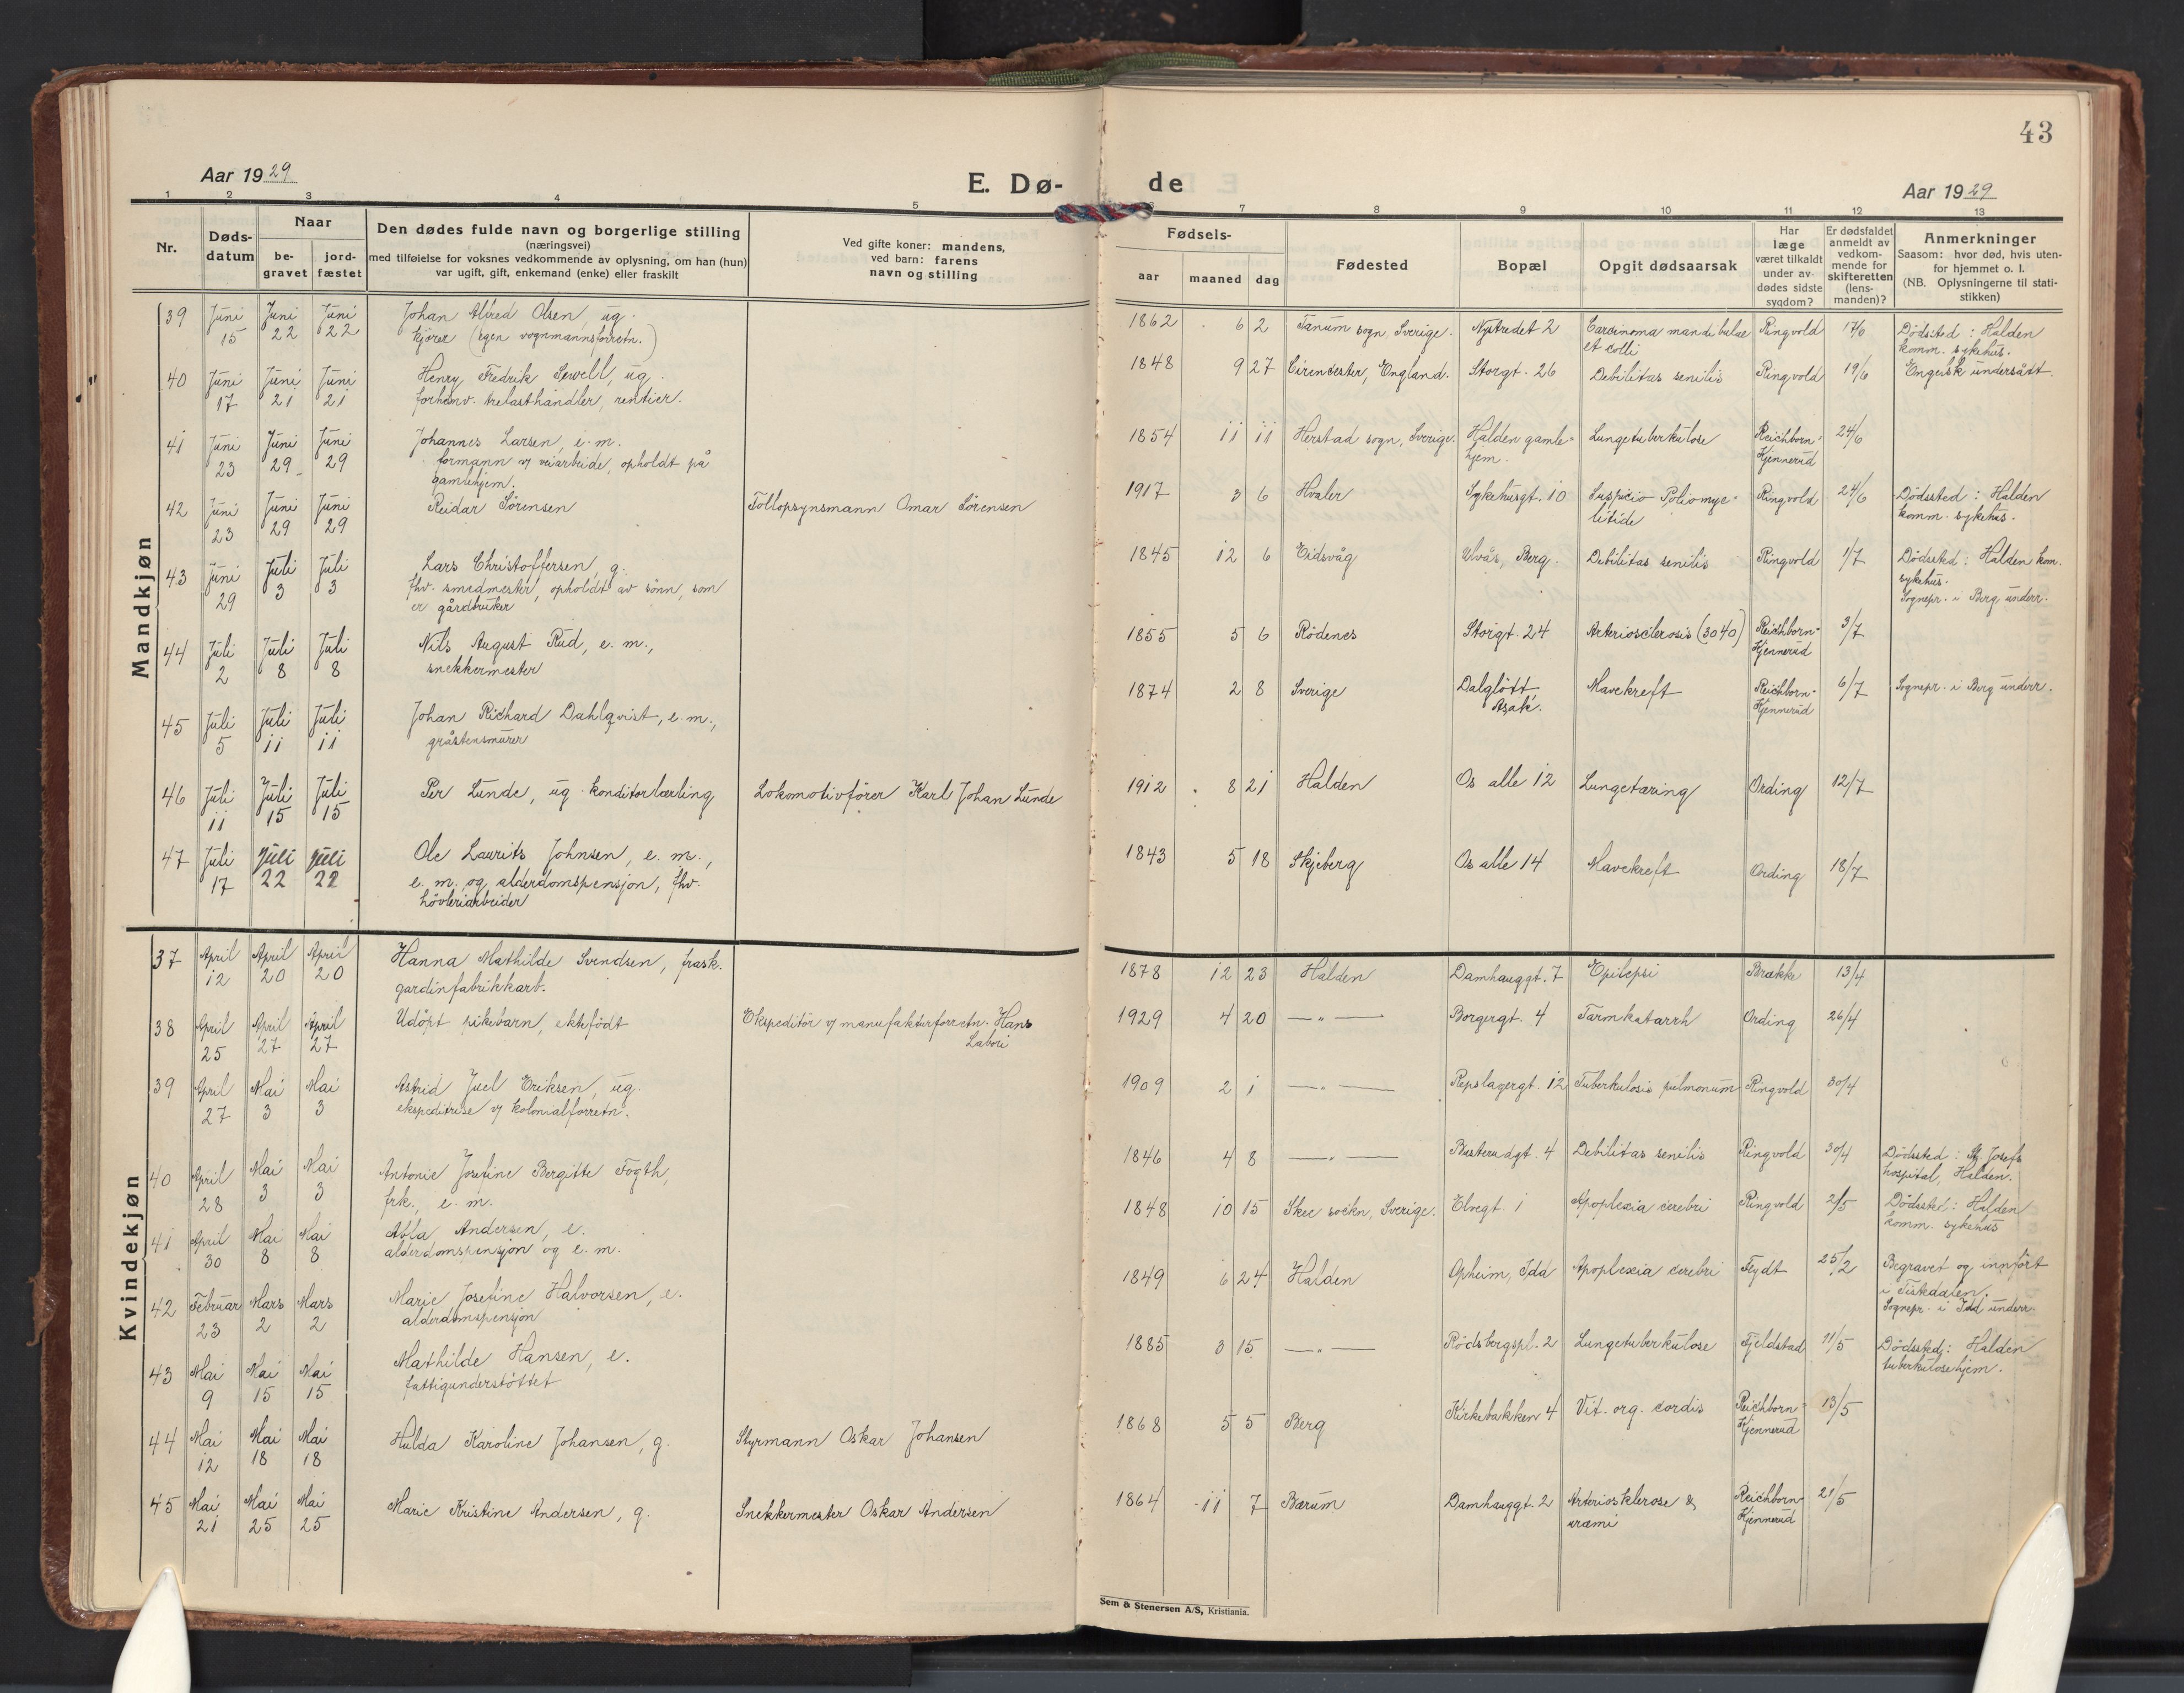 43
Aar 1929
E. Dø-
de
Aar 1929
1 2 3 4 5 6 7 8 9 10 11 12 13
Nr.
Døds-
datum
Naar
be-
gravet
jord-
fæstet
Den dødes fulde navn og borgerlige stilling
(næringsvei)
med tilføielse for voksnes vedkommende av oplysning, om han (hun)
var ugift, gift, enkemand (enke) eller fraskilt
Ved gifte koner: mandens,
ved barn: farens
navn og stilling
Fødsels-
aar maaned dag
Fødested
Bopæl
Opgit dødsaarsak
Har
læge
været tilkaldt
under av-
dødes sidste
sygdom?
Er dødsfaldet
anmeldt av
vedkom-
mende for
skifteretten
(lens-
manden)?
Anmerkninger
Saasom: hvor død, hvis uten-
for hjemmet o. l.
(NB. Oplysningerne til stati-
stikken)
Mandkjøn
39 Juni 15 Juni 22 Juni 22 Johan Alfred Olsen, ug.
kjører (egen vognmannsforretn.)
1862 6 2 Tanum sogn, Sverige. Nystredet 2 Carcinoma mandibulae
et colli Ringvold 17/6 Dødssted: Halden
komm. sykehus.
40 Juni 17 Juni 21 Juni 21 Henry Fredrik Sewell, ug.
forhenv. trelasthandler, rentier.
1848 9 27 Cirencester, England. Storgt. 26 Debilitas senilis Ringvold 19/6 Engelsk undersått.
41 Juni 23 Juni 29 Juni 29 Johannes Larsen, e. m.
formann v/ veiarbeide, opholdt på
gamlehjem.
1854 11 11 Herstad sogn, Sverige. Halden gamle-
hjem. Lungetuberkulose Reichborn-
Kjennerud 24/6
42 Juni 23 Juni 29 Juni 29 Reidar Sörensen Tollopsynsmann Omar Sörensen
1917 3 6 Hvaler Sykehusgt. 10 Suspicio Poliomye-
litide Ringvold 24/6 Dødssted: Halden
komm. sykehus.
43 Juni 29 Juli 3 Juli 3 Lars Christoffersen, g.
fhv. smedmester, opholdt av sönn, som
er gårdbruker
1845 12 6 Eidsvåg Ulvås, Berg. Debilitas senilis Ringvold 1/7 Dödssted: Halden kom.
sykehus.
Sognepr. i Berg underr.
44 Juli 2 Juli 8 Juli 8 Nils August Rud, e. m.,
snekkermester
1855 5 6 Rödenes Storgt. 24 Arteriosclerosis (3040) Reichborn-
Kjennerud 3/7
45 Juli 5 Juli 11 Juli 11 Johan Richard Dahlqvist, e. m.,
gråstensmurer
1874 2 8 Sverige Dalglött,
Asak. Mavekreft Reichborn-
Kjennerud 6/7 Sognepr. i Berg underr.
46 Juli 11 Juli 15 Juli 15 Per Lunde, ug. konditorlærling Lokomotivförer Karl Johan Lunde
1912 8 21 Halden Os alle 12 Lungetæring Ording 12/7
47 Juli 17 Juli 22 Juli 22 Ole Laurits Johnsen, e. m.,
e. m. og alderdomspensjon, fhv.
hövleriarbeider
1843 5 18 Skjeberg Os alle 14 Mavekreft Ording 18/7
Kvindekjøn
37 April 12 April 20 April 20 Hanna Mathilde Svendsen, frask.
gardinfabrikkarb.
1878 12 23 Halden Damhauggt. 7 Epilepsi Brække 13/4
38 April 25 April 27 April 27 Udöpt pikebarn, ektefödt Ekspeditör v/ manufakturforretn. Hans
Labori
1929 4 20 —„— Borgergt. 4 Tarmkatarrh Ording 26/4
39 April 27 Mai 3 Mai 3 Astrid Juel Eriksen, ug.
ekspeditrise v/ kolonialforretn.
1909 2 1 —„— Repslagergt. 12 Tuberkulosis pulmonum Ringvold 30/4
40 April 28 Mai 3 Mai 3 Antonie Josefine Bergitte Fogth,
frk., e. m.
1846 4 8 —„— Busterudgt. 4 Debilitas senilis Ringvold 30/4 Dödssted: St. Josefs
hospital, Halden.
41 April 30 Mai 8 Mai 8 Abla Andersen, e.
alderdomspensjon og e. m.
1848 10 15 Skee sockn, Sverige. Elvegt. 1 Apoplexia cerebri Ringvold 2/5 Dödssted: Halden
komm. sykehus
42 Februar 23 Mars 2 Mars 2 Marie Josefine Halvorsen, e.
alderdomspensjon
1849 6 24 Halden Opheim, Idd Apoplexia cerebri Feydt 25/2 Begravet og innfört
i Tistedalen.
Sognepr. i Idd underr.
43 Mai 9 Mai 15 Mai 15 Mathilde Hansen, e.
fattigunderstöttet
1885 3 15 —„— Rödsbergspl. 2 Lungetuberkulose Fjeldstad 11/5 Dödssted: Halden
tuberkulosehjem.
44 Mai 12 Mai 18 Mai 18 Hulda Karoline Johansen, g. Styrmann Oskar Johansen
1868 5 5 Berg Kirkebakken 4 Vit. org. cordis Reichborn-
Kjennerud 13/5
45 Mai 21 Mai 25 Mai 25 Marie Kristine Andersen, g. Snekkermester Oskar Andersen
1864 11 7 Bærum Damhauggt. 2 Arteriosklerose &
uræmi Reichborn-
Kjennerud 21/5
Sem & Stenersen A/S, Kristiania.